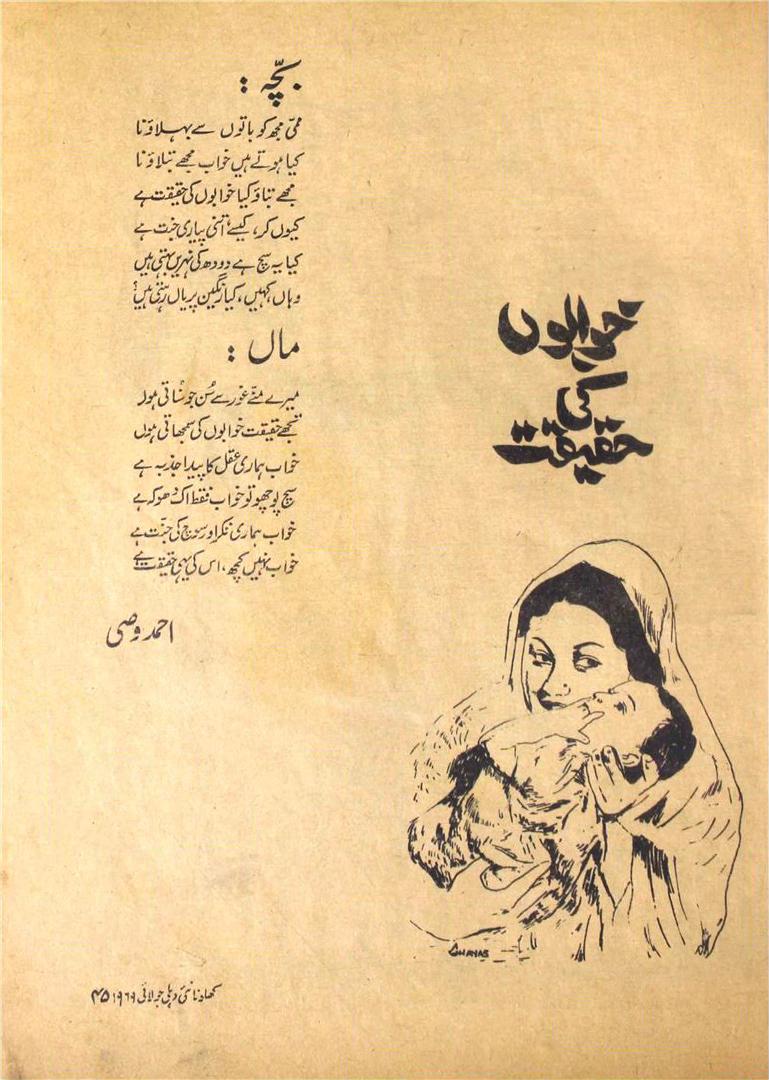 خوابوں
کی
حقیقت
بچّہ :
ممّی مجھ کو باتوں سے بہلاؤ نا
کیا ہوتے ہیں خواب مجھے بتلاؤ نا
مجھے بتاؤ کیا خوابوں کی حقیقت ہے
کیوں کر، کیسے، اتنی پیاری جنت ہے
کیا یہ سچ ہے دودھ کی نہریں بہتی ہیں
وہاں کہیں، کیا رنگین پریاں رہتی ہیں؟
ماں :
میرے منّے غور سے سُن جو سُناتی ہوں
تجھے حقیقت خوابوں کی سمجھاتی ہوں
خواب ہماری عقل کا پیدا جذبہ ہے
سچ پوچھو تو خواب فقط اک دھوکہ ہے
خواب ہماری فکر اور سوچ کی جنّت ہے
خواب نہیں کچھ، اس کی یہی حقیقت ہے
احمد وصی
GHAYAS
کھلونا نئی دہلی جولائی ۱۹۶۹ ۴۵